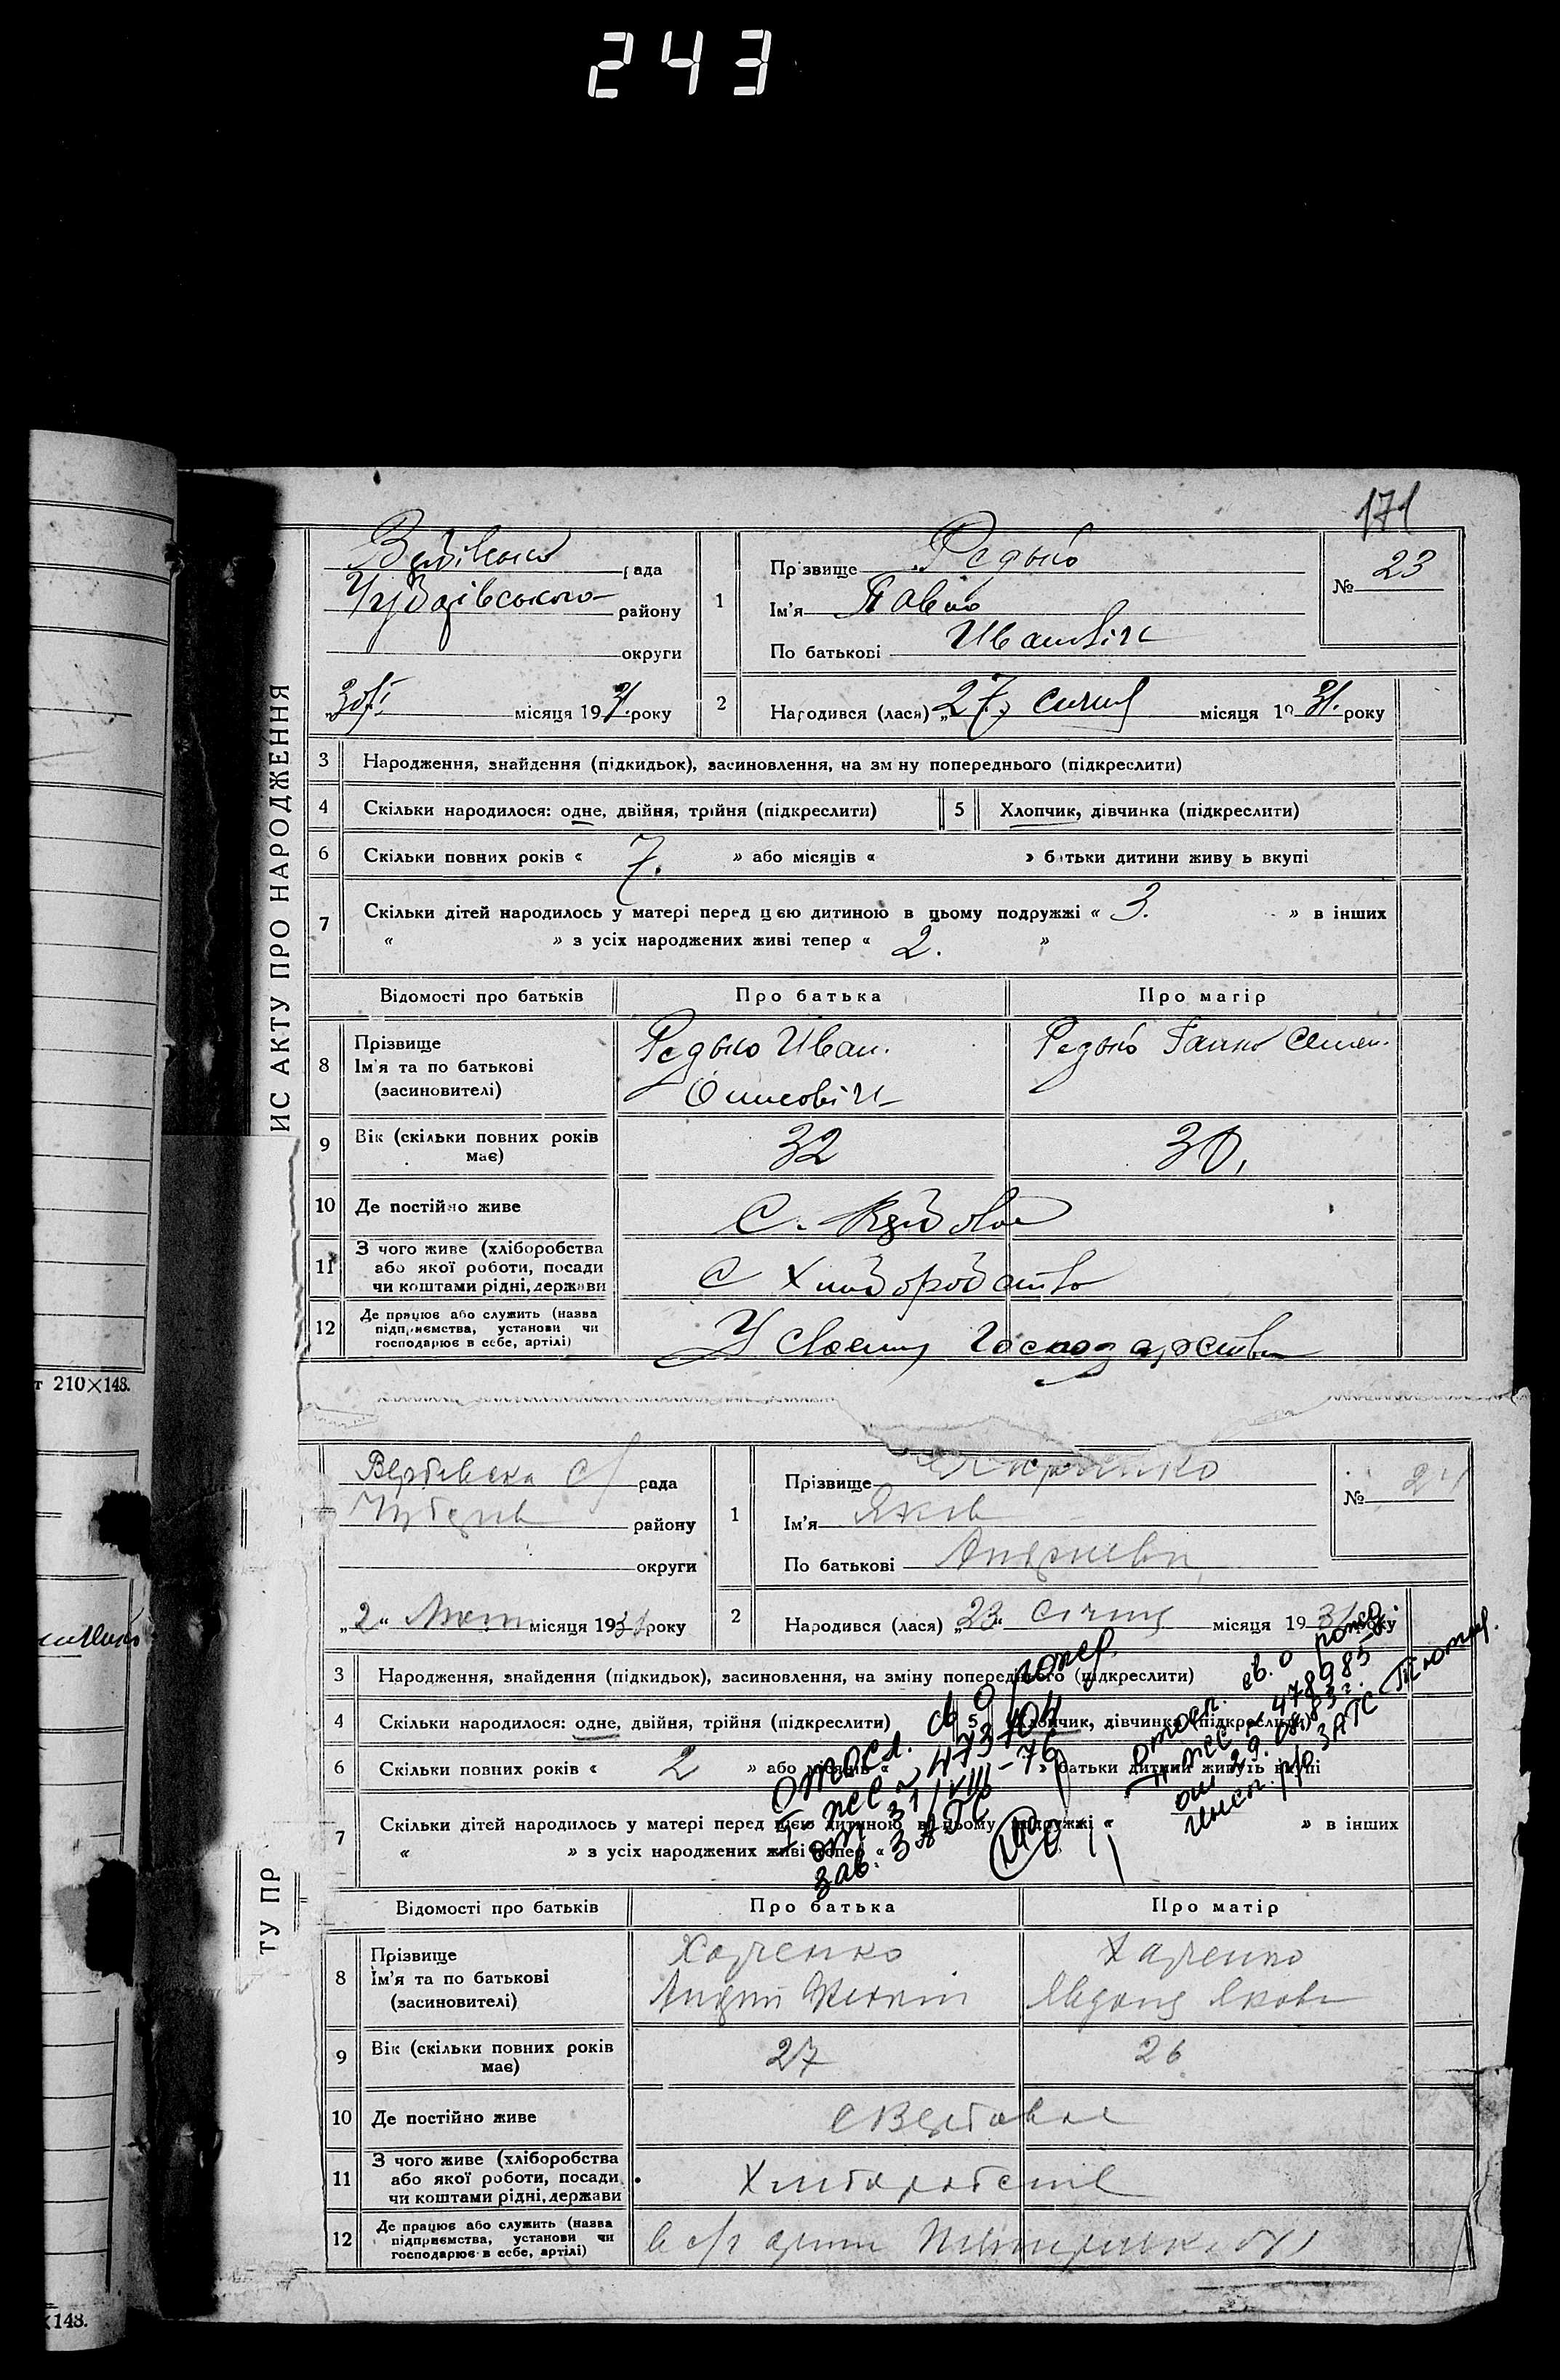 243
171
ИС АКТУ ПРО НАРОДЖЕННЯ
рада
району
округи
30/I місяця 1931. року
1
Прізвище Редько
Ім'я Павло
По батькові Иванович
№ 23
2 Народився (лася) „27„ січня місяця 1931. року
3 Народження, знайдення (підкидьок), засиновлення, на зміну попереднього (підкреслити)
4 Скільки народилося: одне, двійня, трійня (підкреслити)
5 Хлопчик, дівчинка (підкреслити)
6 Скільки повних років « 7. » або місяців « » батьки дитини живуть вкупі
7 Скільки дітей народилось у матері перед цією дитиною в цьому подружжі « 3. » в інших
« » з усіх народжених живі тепер « 2. »
Відомості про батьків Про батька Про матір
8 Прізвище
Ім'я та по батькові
(засиновителі)
Редько Иван.
Редько Ганна Семен.
9 Вік (скільки повних років має) 32 30.
10 Де постійно живе
С.
11 З чого живе (хліборобства
або якої роботи, посади
чи коштами рідні, держави
С Хліборобства
12 Де працює або служить (назва
підприємства, установи чи
господарює в себе, артілі)
У своему Господарстви
т 210×148.
Вербівська с/ рада
району
округи
„2„ Лютий місяця 1931 року
1
Прізвище
Ім'я Яков
По батькові
№ 24
2 Народився (лася) „23„ Січня місяця 1931 року
3 Народження, знайдення (підкидьок), засиновлення, на зміну попереднього (підкреслити)
4 Скільки народилося: одне, двійня, трійня (підкреслити)
5 Хлопчик, дівчинка (підкреслити)
6 Скільки повних років « 2 » або місяців « » батьки дитини живуть вкупі
7 Скільки дітей народилось у матері перед цією дитиною в цьому подружжі « » в інших
« » з усіх народжених живі тепер «
св о
от 31/VIII-76
зав. ЗАГС
св. о
№ 478985
ЗАГС
ТУ ПР
Відомості про батьків Про батька Про матір
8 Прізвище
Ім'я та по батькові
(засиновителі)
Харченко
Харченко
9 Вік (скільки повних років має) 27 26
10 Де постійно живе
с Вербове
11 З чого живе (хліборобства
або якої роботи, посади
чи коштами рідні, держави
Хліборобство
12 Де працює або служить (назва
підприємства, установи чи
господарює в себе, артілі)
×148.